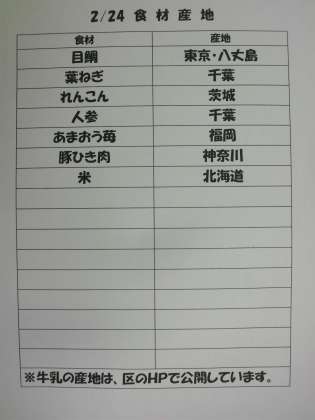 2/24 食材産地
食材 産地
目鯛 東京・八丈島
葉ねぎ 千葉
れんこん 茨城
人参 千葉
あまおう苺 福岡
豚ひき肉 神奈川
米 北海道
※牛乳の産地は、区のHPで公開しています。